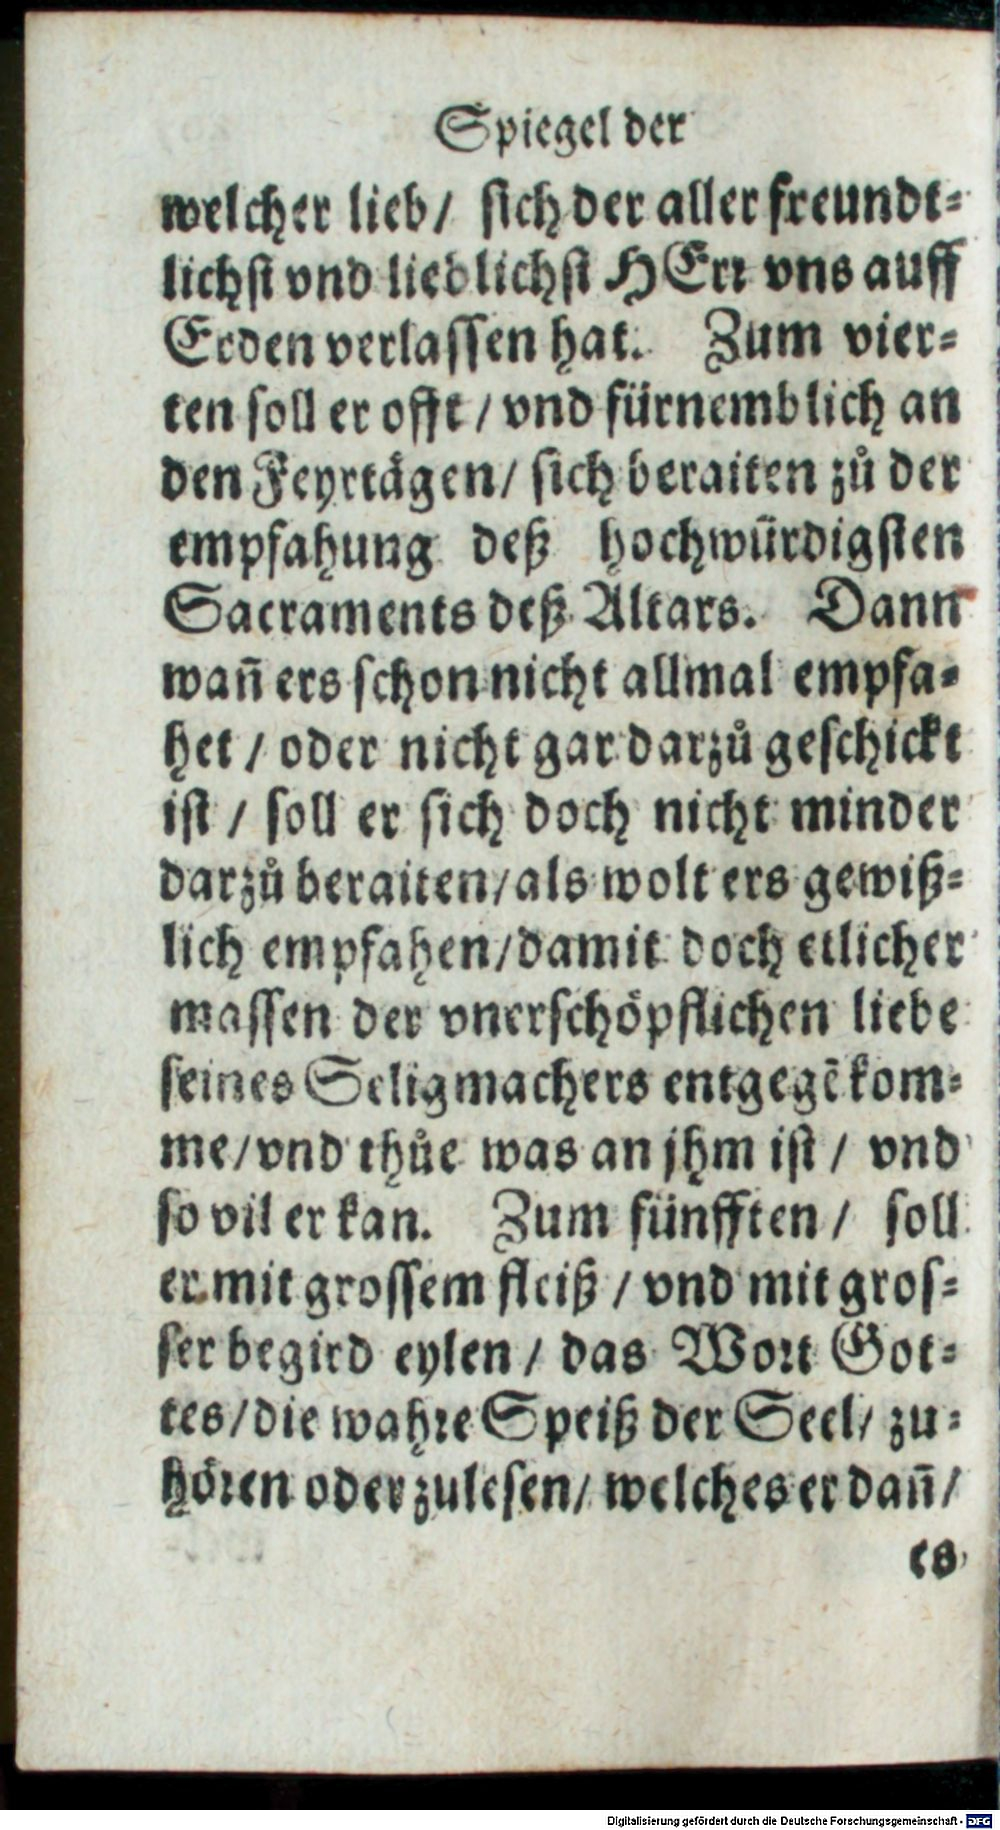 Spiegel der
welcher lieb/ sich der aller freundt-
lichst vnd lieblichst HErr vns auff
Erden verlassen hat. Zum vier-
ten soll er offt / vnd fürnemblich an
den Feyrtägen/ sich beraiten zů der
empfahung deß hochwürdigsten
Sacraments deß Altars. Dann
wañ ers schon nicht allmal empfa-
het / oder nicht gar darzů geschickt
ist / soll er sich doch nicht minder
darzů beraiten/als wolt ers gewiß-
lich empfahen/damit doch etlicher
massen der vnerschöpflichen liebe
seines Seligmachers entgegẽ kom-
me/vnd thůe was an jhm ist / vnd
so vil er kan. Zum fünfften / soll
er mit grossem fleiß / vnd mit gros-
ser begird eylen / das Wort Got-
tes/die wahre Speiß der Seel/ zu-
hören oder zulesen/ welches er dañ/
es
Digitalisierung gefördert durch die Deutsche Forschungsgemeinschaft - DFG